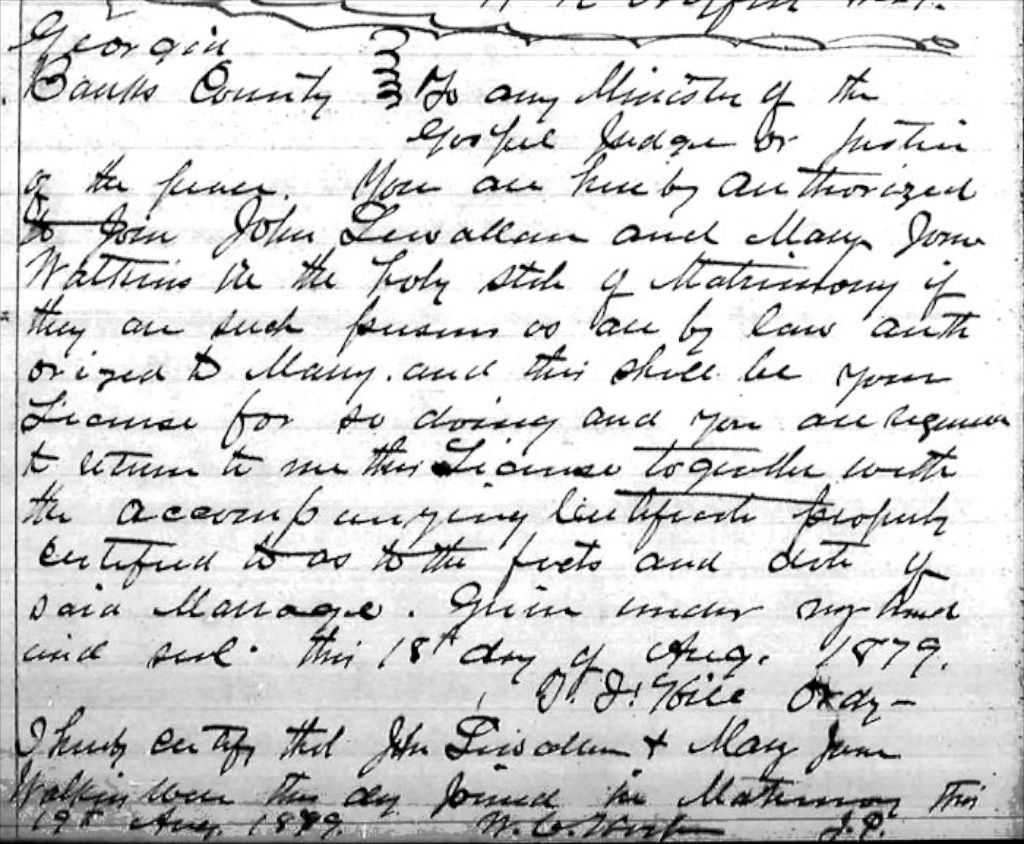 Georgia
Banks County To any Minister of the
Gospel Judge or Justice
of the peace. You are hereby authorized
to Join John Lewallen and Mary Jane
Watkins in the holy state of Matrimony if
they are such persons as are by law auth
orized to Marry. and this shall be your
License for so doing and you are required
to return to me this License together with
the accompanying Certificate properly
certified to as to the facts and date of
said Marriage. Given under my hand
and seal. this 18th day of Aug. 1879.
T. F. Hill Ordy-
I hereby certify that John Lewallen & Mary Jane
Watkins were this day Joined in Matrimony this
19th Aug. 1879. W. C. J.P.